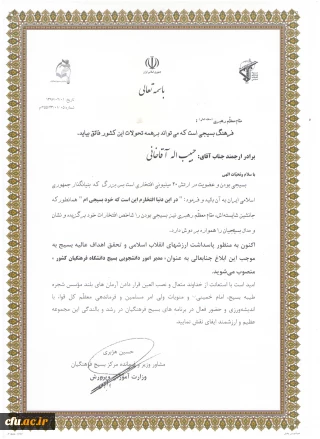 باسمه تعالی
فرهنگ بسیجی است که می تواند برهمه تحولات این کشور فائق بیاید.
برادر ارجمند جناب آقای: حبیب اله آقاخانی
با سلام وتحیات الهی
بسیجی بودن و عضویت در ارتش ۲۰ میلیونی افتخاری است بس بزرگ که بنیانگذار جمهوری
اسلامی ایران به آن بالید و فرمود: " در این دنیا افتخارم این است که خود بسیجی ام " همانطور که
جانشین شایسته‌اش، مقام معظم رهبری نیز بسیجی بودن را شاخص افتخارات خود برگزیده و نشان
و مدال بسیجیان را همواره بر دوش دارد.
اکنون به منظور پاسداشت ارزشهای انقلاب اسلامی و تحقق اهداف عالیه بسیج به
موجب این ابلاغ جنابعالی به عنوان، مدیر امور دانشجویی بسیج دانشگاه فرهنگیان کشور ،
منصوب می‌شوید.
امید است با استعانت از خداوند متعال و نصب العین قرار دادن آرمان های بلند مؤسس شجره
طیبه بسیج، امام خمینی و منویات ولی امر مسلمین و فرماندهی معظم کل قوا، با
اندیشه‌ورزی و حضور فعال در برنامه های بسیج فرهنگیان در رشد و بالندگی این مجموعه
عظیم و ارزشمند ایفای نقش نمایید.
حسین هژبری
مشاور وزیر و فرمانده مرکز بسیج فرهنگیان
وزارت آموزش و پرورش
cfu.ac.ir